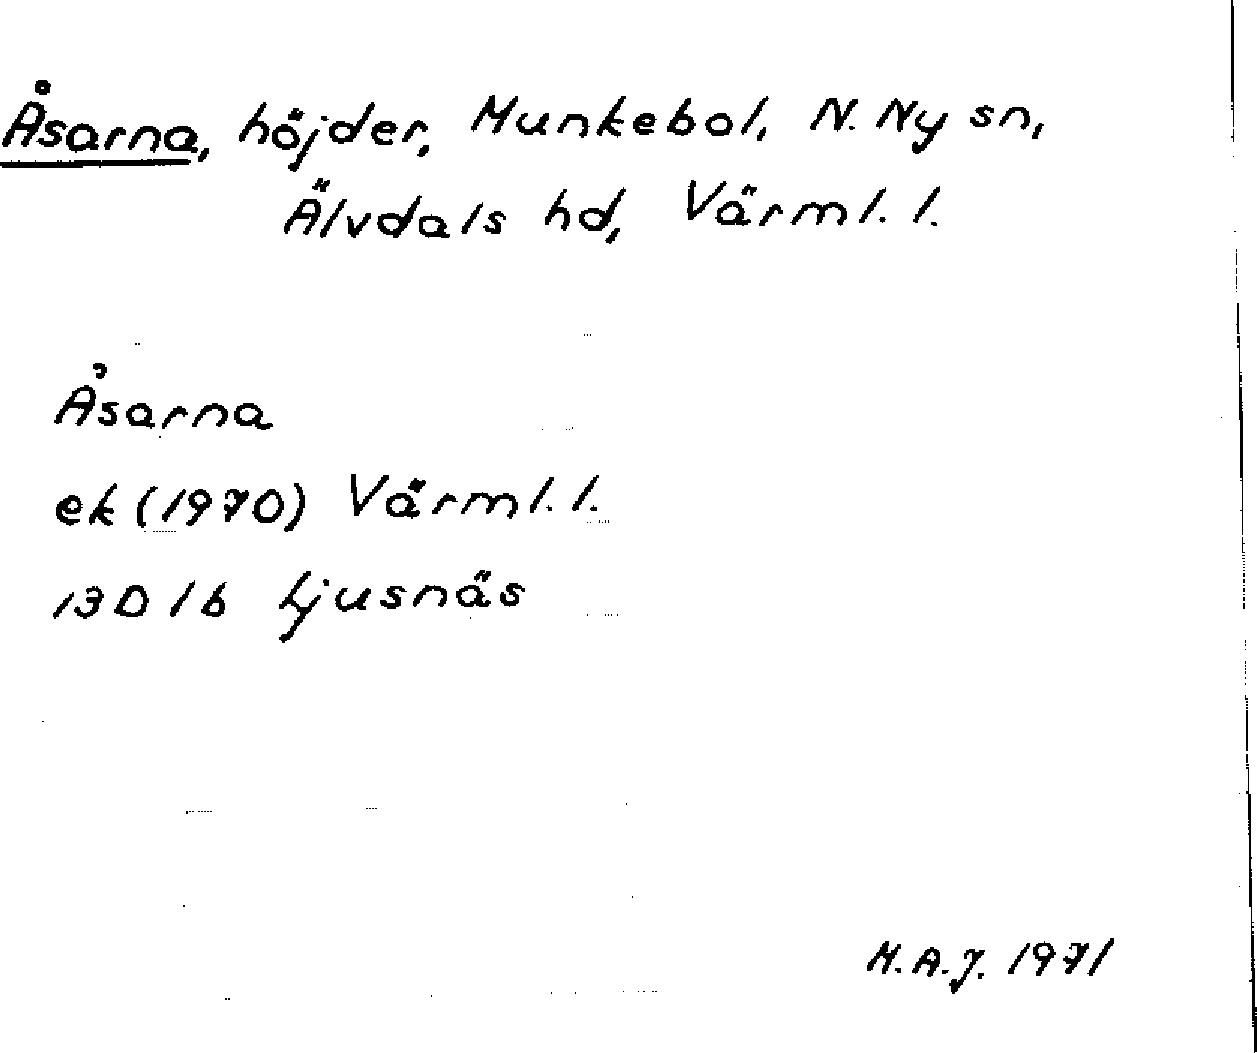 Åsarna, höjder, Munkebol, N. Ny sn,
Älvdals hd, Värml. l.
Åsarna
ek (1970) Värml. l.
13D 1b Ljusnäs
M.A.J. 1971